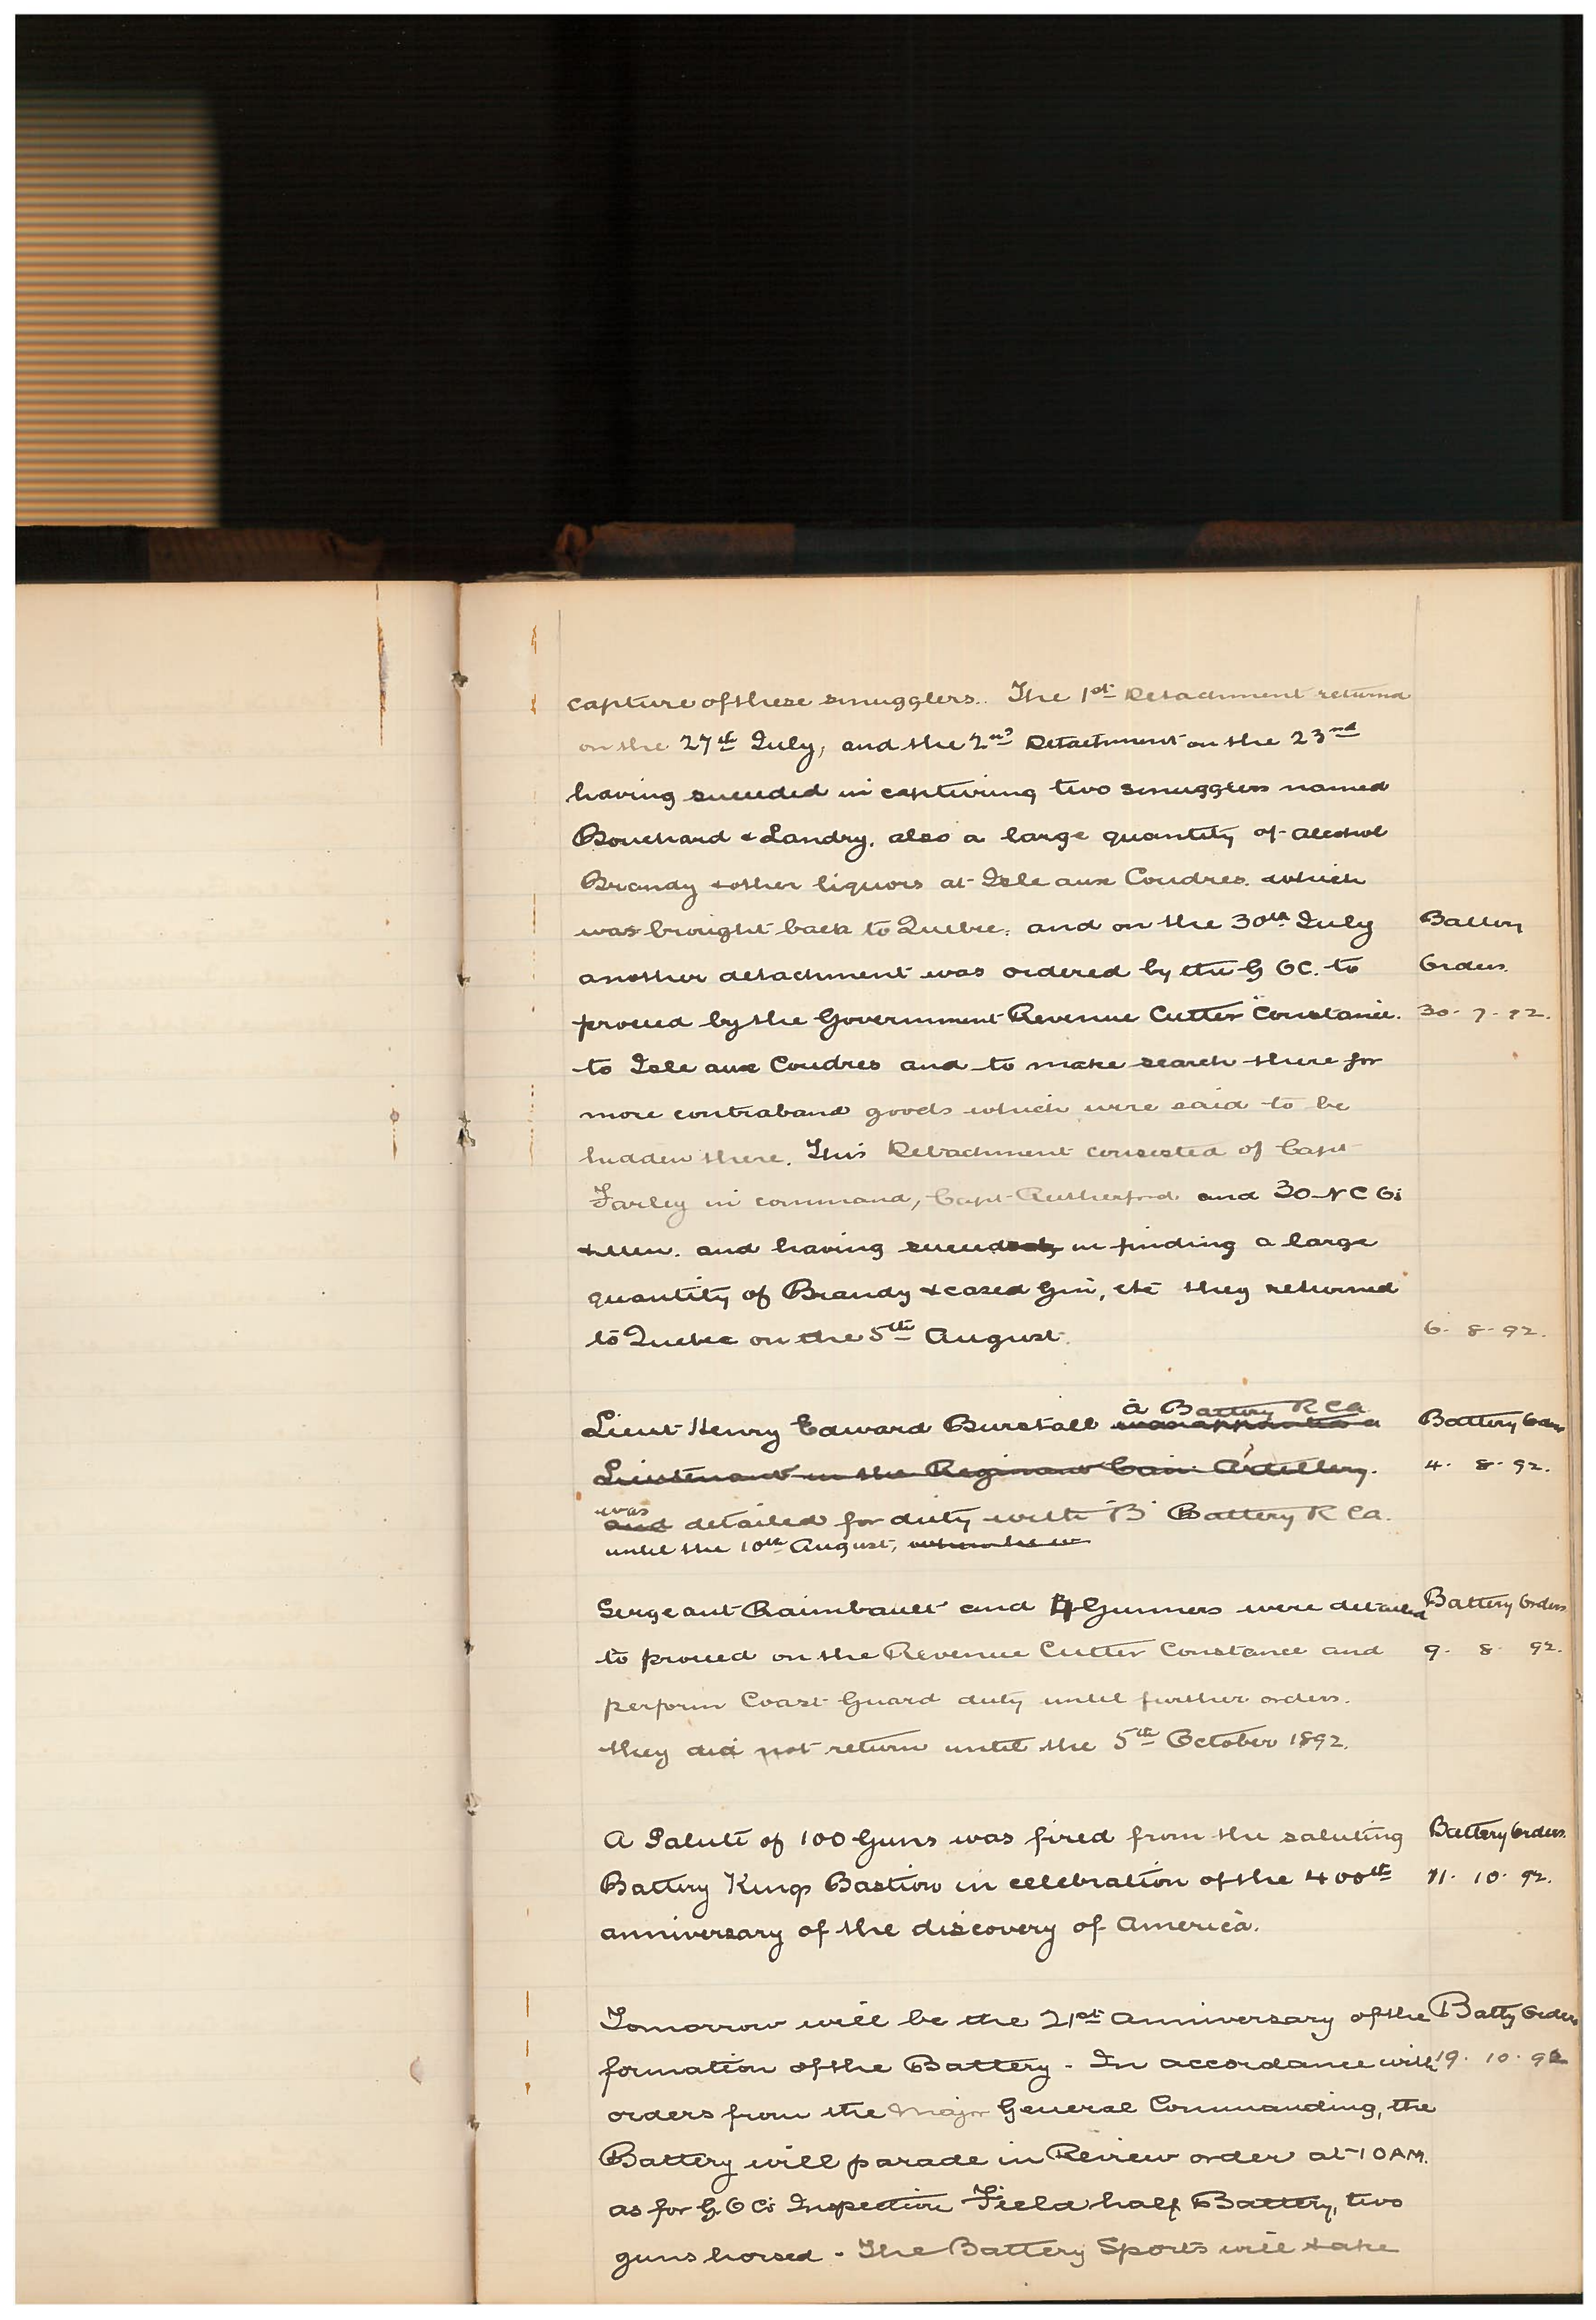 capture of these smugglers. The 1st Detachment returned
on the 27th July, and the 2nd Detachment on the 23rd
having succeeded in capturing two smugglers named
Bouchard & Landry, also a large quantity of alcohol
Brandy & other liquors at Isle aux Coudres which
was brought back to Quebec. and on the 30th July Battery
another detachment was ordered by the G OC. to Orders.
proceed by the Government Revenue Cutter "Constance. 30. 7. 92.
to Isle aux Coudres and to make search there for
more contraband goods which were said to be
hidden there. This Detachment consisted of Capt
Farley in command, Capt Rutherford and 30 N C Os
& Men. and having succeeded in finding a large
quantity of Brandy & cased Gin, etc they returned
to Quebec on the 5th August. 6. 8. 92.
A Battery R C A
Lieut Henry Edward Burstall was appointed a Battery Orders
Lieutenant in the Regiment Can: Artillery. 4. 8. 92.
was
and detailed for duty with "B" Battery R C A.
until the 10th August, when he w
Sergeant Raimbault and 4 Gunners were detailed Battery Orders
to proceed on the Revenue Cutter Constance and 9. 8. 92.
perform Coast Guard duty until further orders.
they did not return until the 5th October 1892.
A Salute of 100 Guns was fired from the saluting Battery Orders.
Battery Kings Bastion in celebration of the 400th 11. 10. 92.
anniversary of the discovery of America.
Tomorrow will be the 21st Anniversary of the Batty Orders
formation of the Battery - In accordance with 19. 10. 92
orders from the Major General Commanding, the
Battery will parade in Review order at 10 AM.
as for G O Cs Inspection Field half Battery, two
guns horsed - The Battery Sports will take